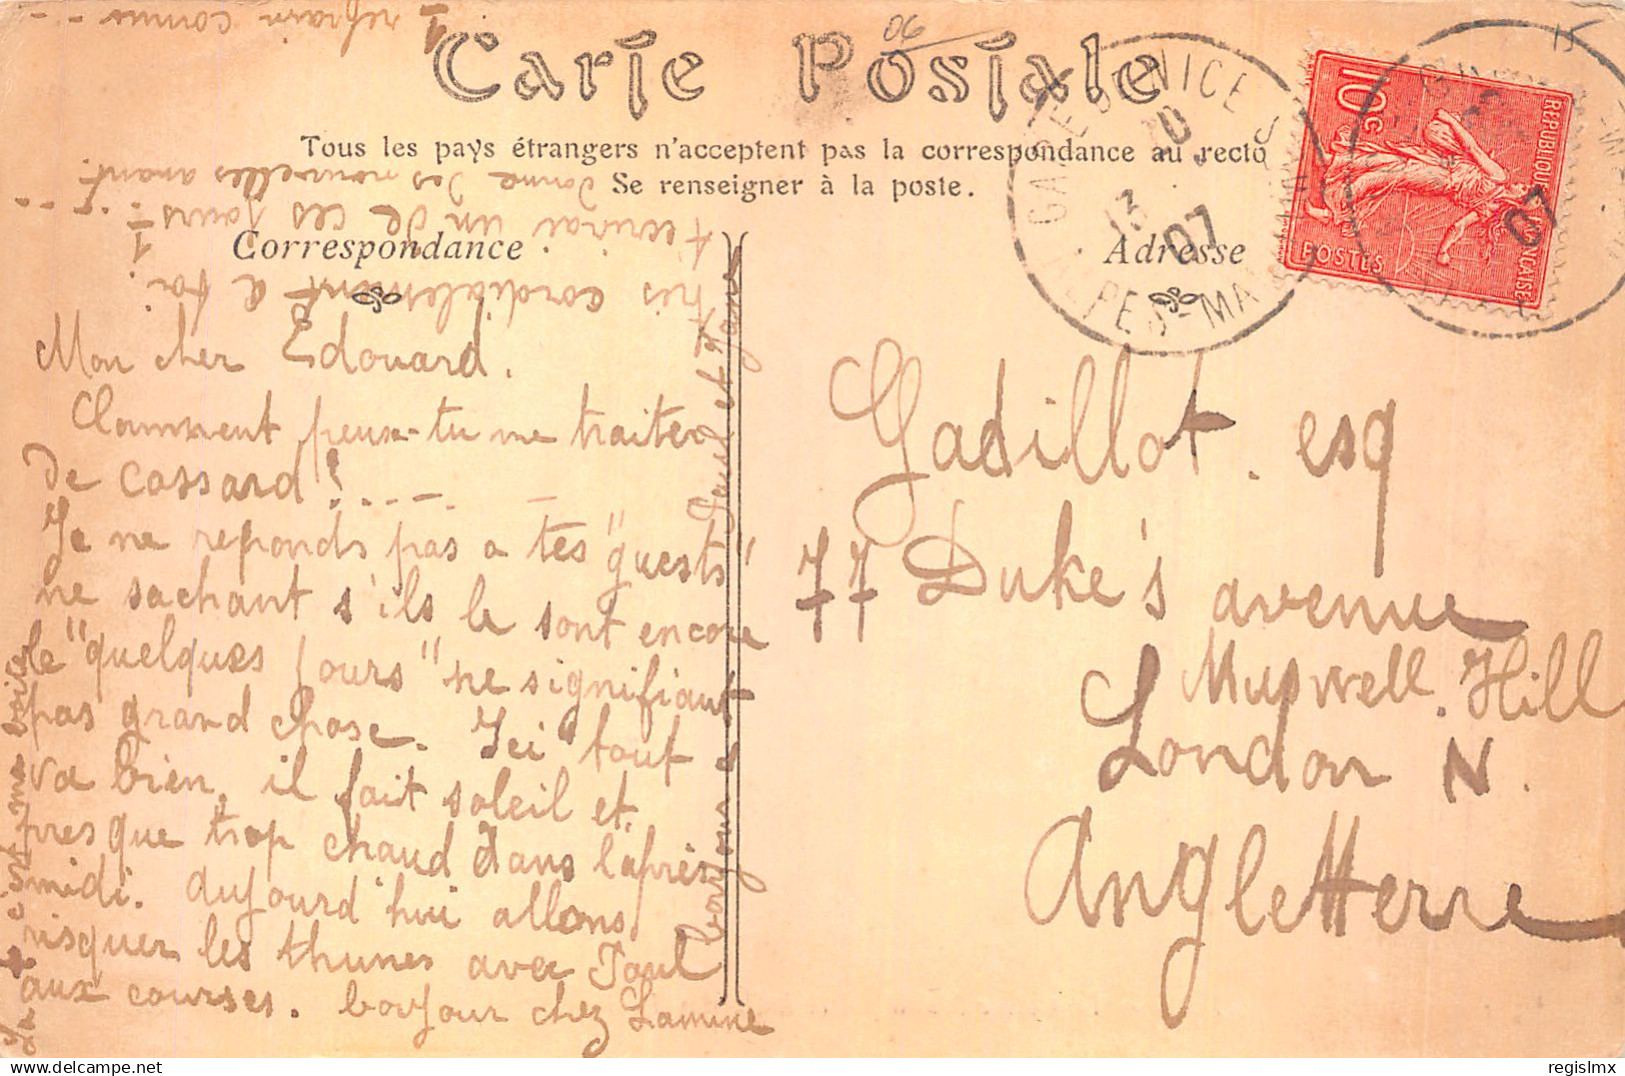 Carte Postale
06
Tous les pays étrangers n'acceptent pas la correspondance au recto
Se renseigner à la poste.
Correspondance
Adresse
GARE DE NICE
ALPES-MAR
13
07
10c
REPUBLIQUE FRANÇAISE
POSTES
07
Mon cher Edouard.
Comment peux-tu me traiter
de cossard! ....
Je ne reponds pas a tes "quests"
ne sachant s'ils le sont encore
le "quelques jours" ne signifiant
pas grand chose. Ici tout
va bien, il fait soleil et
presque trop chaud dans l'après
midi. aujourd'hui allons
risquer les thunes avec Paul
aux courses. bonjour chez Lamine
bonjour a Paul et Hans
très cordialement à toi
t'ecrirai un de ces jours
donne des nouvelles avant.
refrain connu - - -
Gadillot. esq
77 Duke's avenue
Muswell. Hill
London N.
Angleterre
regislmx